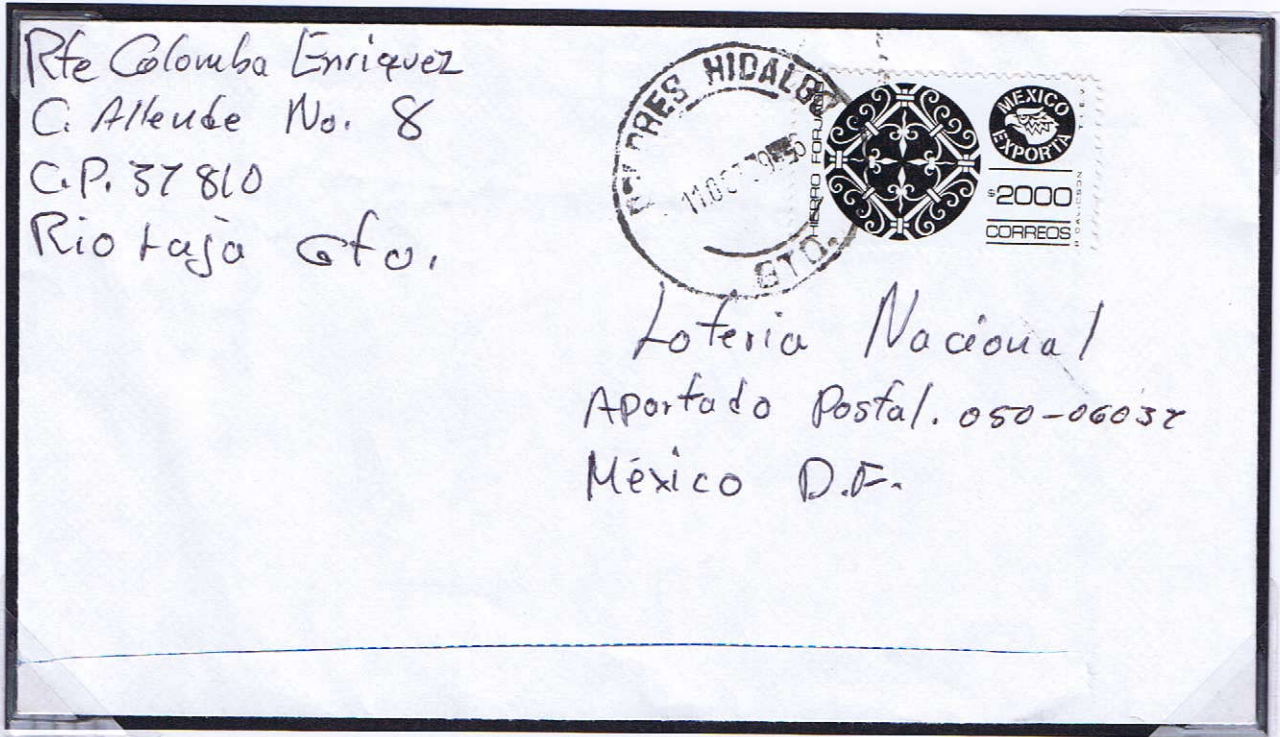 Rte Colomba Enriquez
C. Allende No. 8
C.P. 37810
Rio Laja Gto.
HIDALGO
GTO.
HIERRO FORJADO
MEXICO
EXPORTA
$2000
CORREOS
T.I.E.V.
Loteria Nacional
Apartado Postal. 050-06037
México D.F.